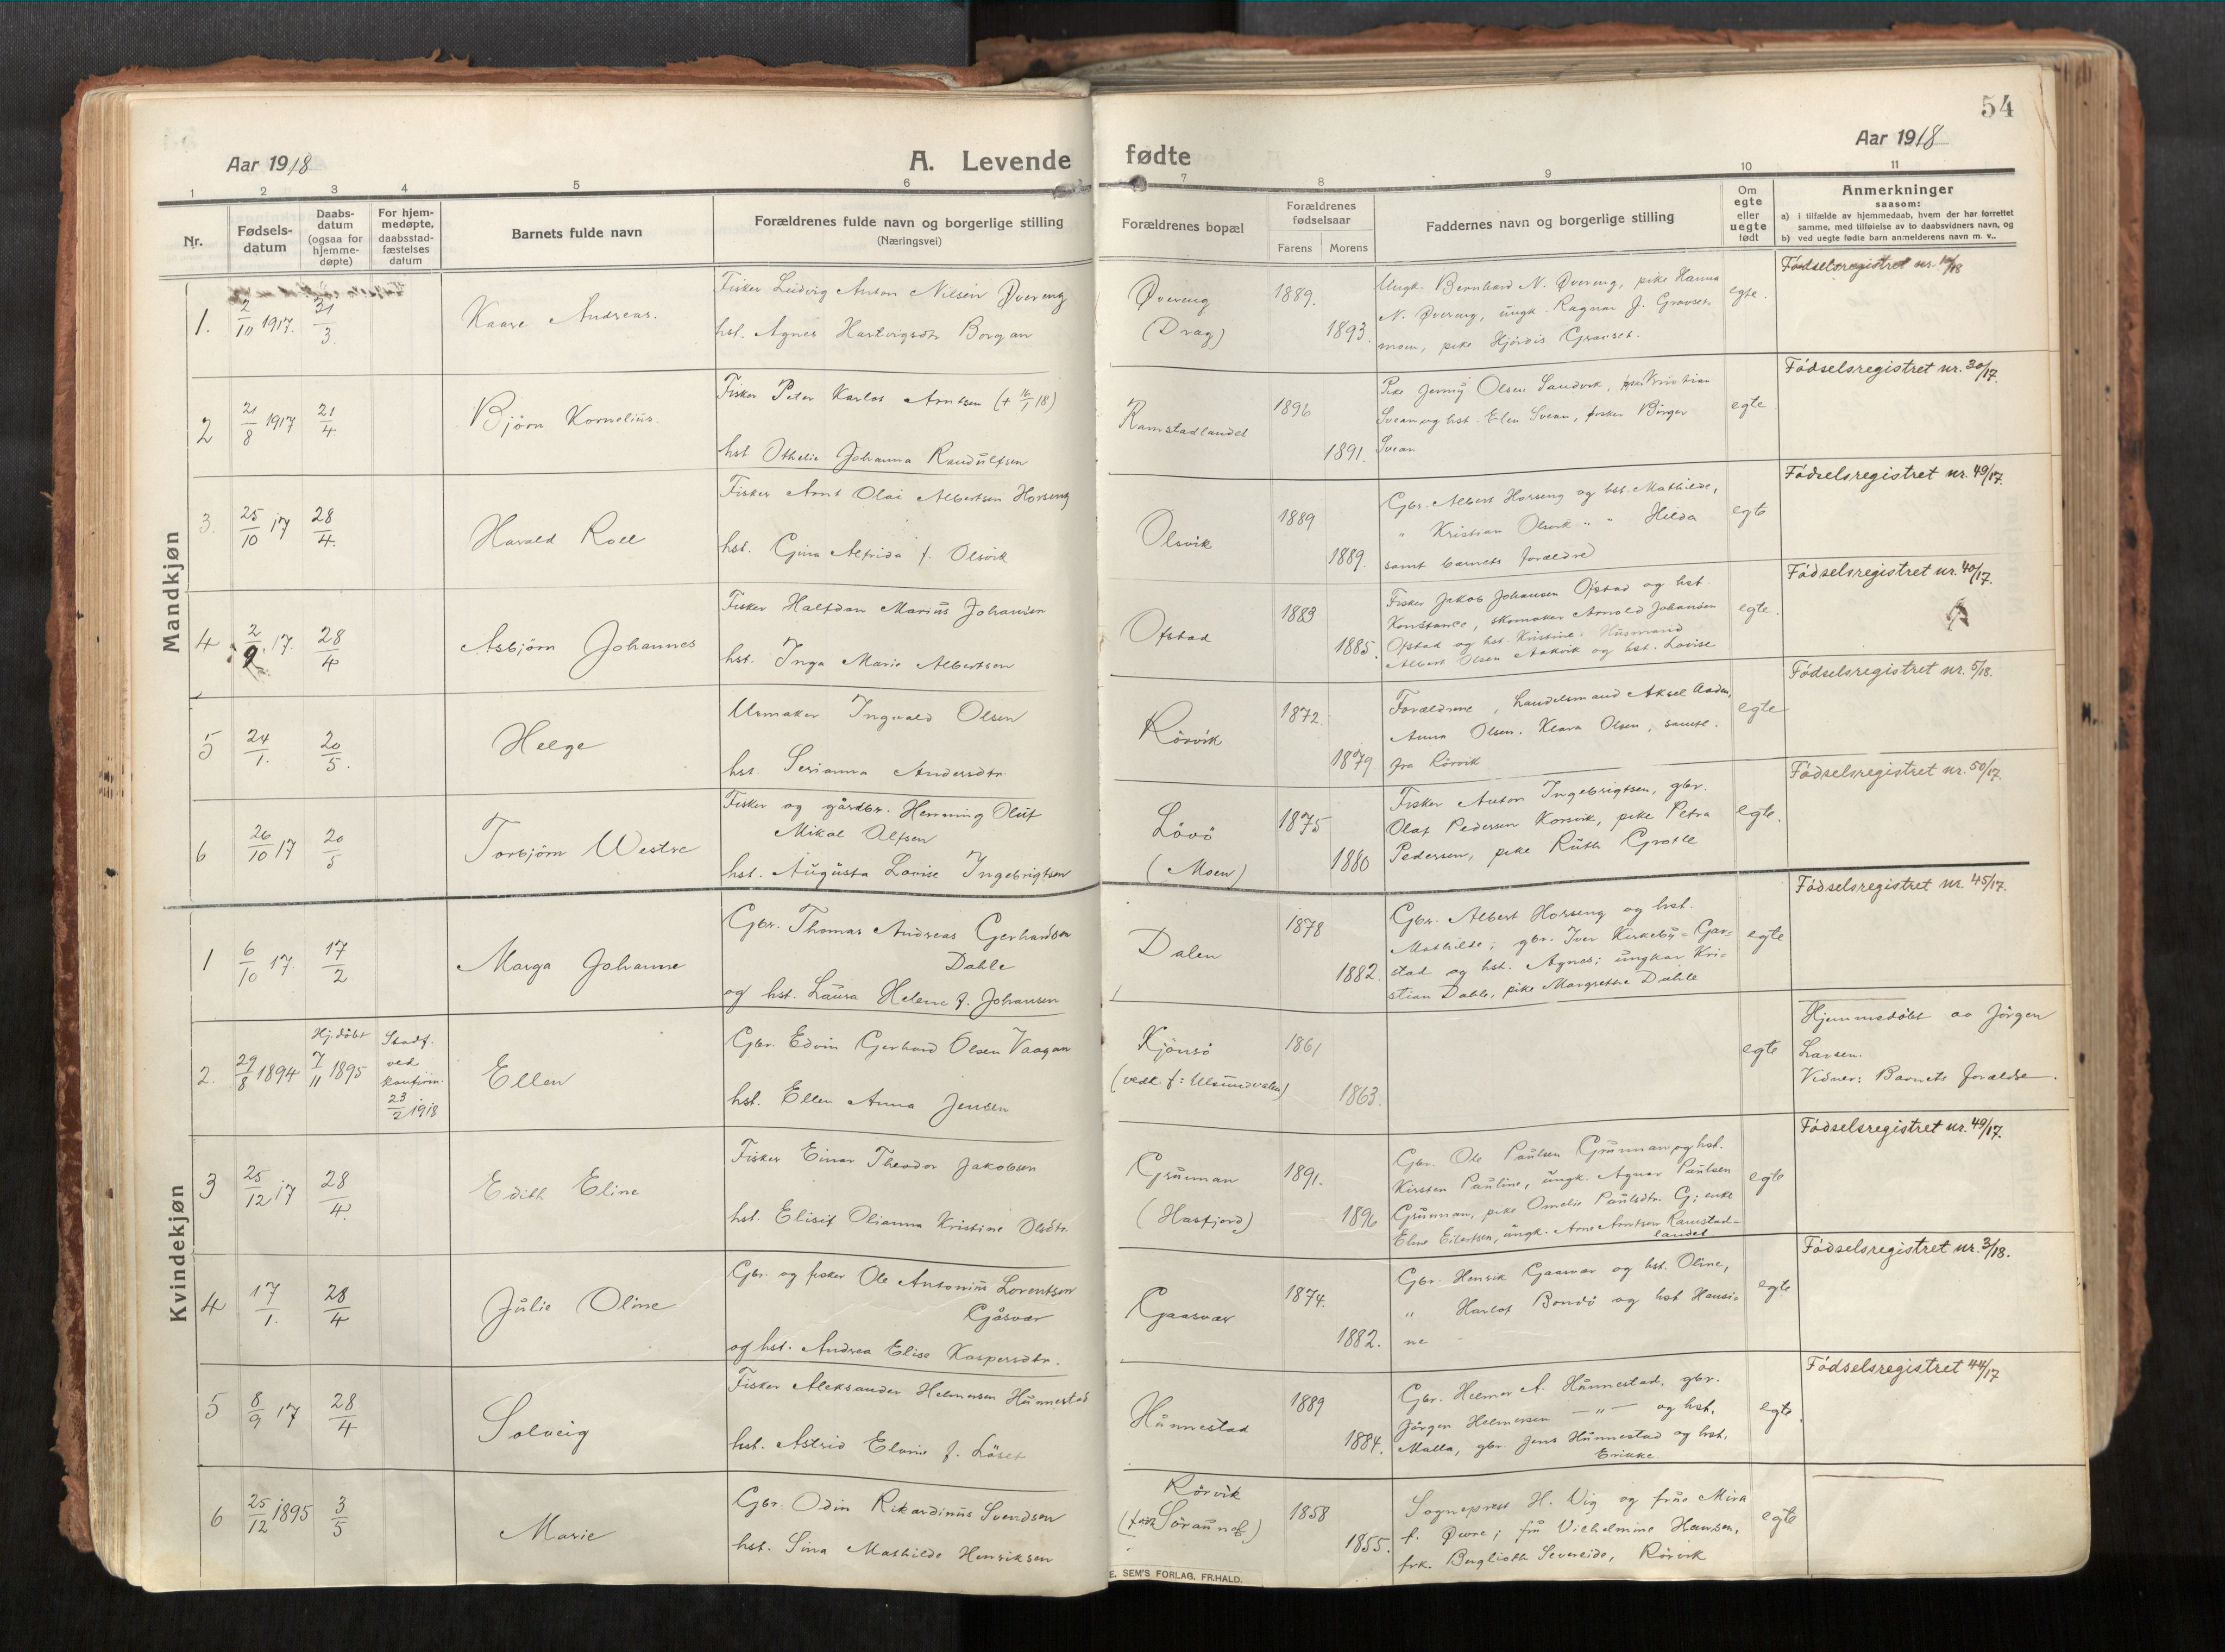 54
Aar 1918
A. Levende fødte
Aar 1918
1 2 3 4 5 6 7 8 9 10 11
Nr.
Fødsels-
datum
Daabs-
datum
(ogsaa for
hjemme-
døpte)
For hjem-
medøpte,
daabsstad-
fæstelses
datum
Barnets fulde navn
Forældrenes fulde navn og borgerlige stilling
(Næringsvei)
Forældrenes bopæl
Forældrenes
fødselsaar
Farens Morens
Faddernes navn og borgerlige stilling
Om
egte
eller
uegte
født
Anmerkninger
saasom:
a) i tilfælde av hjemmedaab, hvem der har forrettet
samme, med tilføielse av to daabsvidners navn, og
b) ved uegte fødte barn anmelderens navn m. v..
Mandkjøn
1. 2/10 1917. 21/3 Kaare Andreas.
Fisker Ludvig Anton Nilsen Øvereng
hst. Agnes Hartvigsdtr Borgan
Øvereng
(Drag)
1889.
1893.
Ungk. Bernhard N. Øvereng, pike Hanna
N. Øvereng, ungk. Ragnar J. Granset-
moen, pike Hjördis Granset.
egte.
Födselsregistret nr.
2 21/8 1917 21/4 Björn Kornelius.
Fisker Peter Karlot Arntsen (+ 16/1 18)
hst Othelie Johanna Randulfsen
Ramstadlandet
1896
1891.
Pike Jenny Olsen Sandvik, fisker Kristian
Svean og hst. Elen Svean, fisker Birger
Svean
egte
Födselsregistret nr. 30/17.
3. 25/10 17 28/4. Harald Roll
Fisker Arnt Olai Albertsen Horseng
hst. Gina Alfrida f. Olsvik
Olsvik
1889
1889.
Gbr. Albert Horseng og hst. Mathilde,
" Kristian Olsvik " " Hilda
samt barnets forældre
egte
Födselsregistret nr. 49/17.
4 2/9 17. 28/4 Asbjörn Johannes
Fisker Halfdan Marius Johansen
hst. Inga Marie Albertsen
Ofstad
1883
1885.
Fisker Jakob Johansen Ofstad og hst.
Konstance, skomaker Arnold Johansen
Ofstad og hst. Kristine. Husmand
Albert Olsen Aakvik og hst. Lovise
egte.
Födselsregistret nr. 40/17.
5 24/1. 20/5. Helge
Urmaker Ingvald Olsen
hst. Serianna Andersdtr.
Rörvik
1872.
1879.
Forældrene, handelsmand Aksel
Anna Olsen. Klara Olsen, samtl.
fra Rörvik
egte
Födselsregistret nr. 5/18.
6 26/10 17 20/5 Torbjörn Westre
Fisker og gårdbr. Henning Oluf
Mikal Olfsen
hst. Augusta Lovise Ingebrigtsen
Lövö
(Moen)
1875
1880
Fisker Anton Ingebrigtsen, gbr.
Olaf Pedersen Korsvik, pike Petra
Pedersen, pike Ruth Grotle
egte.
Födselsregistret nr. 50/17.
Kvindekjøn
1 6/10 17. 17/2 Marga Johanne
Gbr. Thomas Andreas Gerhardsen
Dahle
og hst. Laura Helene f. Johansen
Dalen
1878
1882.
Gbr. Albert Horseng og hst.
Mathilde; gbr. Iver Kirkeby=Gar=
stad og hst. Agnes; ungkar Kri=
stian Dahle, pike Margrethe Dahle
egte
Födselsregistret nr. 45/17.
2. 29/8 1894 Hj.döbt 7/11 1895
Stadf.
ved
konfirm.
23/2 1918
Ellen
Gbr. Edvin Gerhard Olsen Vaagan
hst. Ellen Anna Jensen
Kjönsö
(vedk. f: Ulsundvalen)
1861
1863.
egte
Hjemmedöbt av Jörgen
Larsen.
Vidner: Barnets forældre.
3 25/12 17 28/4. Edith Eline
Fisker Einar Theodor Jakobsen
hst. Elisif Olianna Kristine Olsdtr.
Grunnan
(Hasfjord)
1891.
1896
Gbr. Ole Paulsen Grunnan og hst.
Kirsten Pauline, ungk. Agnar Paulsen
Grunnan, pike Omelie Paulsdtr. G; enke
Eline Eilertsen, ungk. Arne Arntsen Ramstad=
landet.
egte
Födselsregistret nr. 49/17.
4 17/1. 28/4 Julie Oline
Gbr. og fisker Ole Antonius Lorentsen
Gåsvær
og hst. Andrea Elise Kaspersdtr.
Gaasvær
1874.
1882.
Gbr. Henrik Gaasvær og hst. Oline,
" Harlof Bondö og hst Hansi=
ne
egte
Födselsregistret nr. 3/18.
5 8/9 17 28/4 Solveig
Fisker Aleksander Helmersen Hunnestad
hst. Astrid Elvine f. Löset
Hunnestad
1889
1884.
Gbr. Helmer A. Hunnestad, gbr.
Jörgen Helmersen — " — og hst.
Malla, gbr. Jens Hunnestad og hst.
Erikke.
egte.
Födselsregistret 44/17
6 25/12 1895 3/5 Marie
Gbr. Odin Rikardinus Svendsen
hst. Sina Mathilde Henriksen
Rörvik
1858
1855.
Sogneprest H. Vig og frue Mira
f. Øwre; fru Vilhelmine Hansen,
frk. Bergljoth Severeide, Rörvik
egte
E. SEM'S FORLAG, FR.HALD.